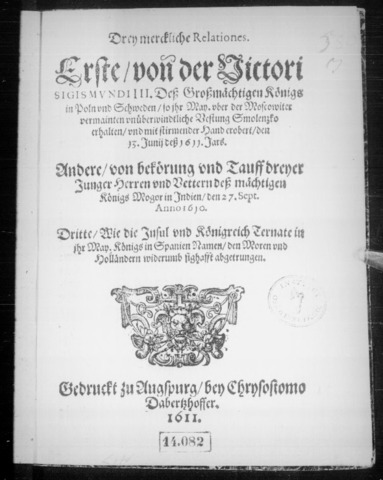 Drey merckliche Relationes.
Erste/ von der Victori
SIGISMVNDI III. Deß Großmächtigen Königs
in Poln vnd Schweden/ so jhr May. vber der Moscowiter
vermainten vnüberwindtliche Vestung Smolenzko
erhalten/ vnd mit stürmender Hand erobert/ den
13. Junij deß 1611. Jars.
Andere/ von bekörung vnd Tauff dreyer
Junger Herren vnd Vettern deß mächtigen
Königs Mogor in Indien/ den 27. Sept.
Anno 1610.
Dritte/ Wie die Insul vnd Königreich Ternate in
jhr May. Königs in Spanien Namen/ den Moren vnd
Holländern widerumb sighafft abgetrungen.
Gedruckt zu Augspurg/ bey Chrysostomo
Dabertzhoffer.
1611.
14.082